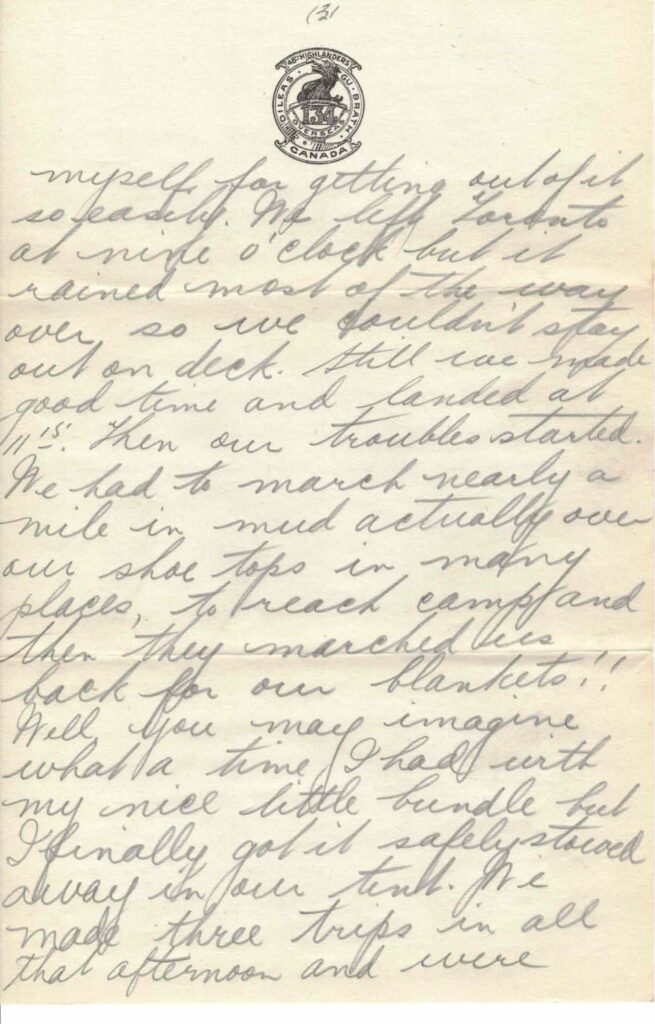 (3)
48TH HIGHLANDERS
DILEAS GU BRATH
134
OVERSEAS
CANADA
myself, for getting out of it
so easily. We left Toronto
at nine o'clock but it
rained most of the way
over so we couldn't stay
out on deck. Still we made
good time and landed at
11 15. Then our troubles started.
We had to march nearly a
mile in mud actually over
our shoe tops in many
places, to reach camp and
then they marched us
back for our blankets!!
Well you may imagine
what a time I had with
my nice little bundle but
I finally got it safely stowed
away in our tent. We
made three trips in all
that afternoon and were